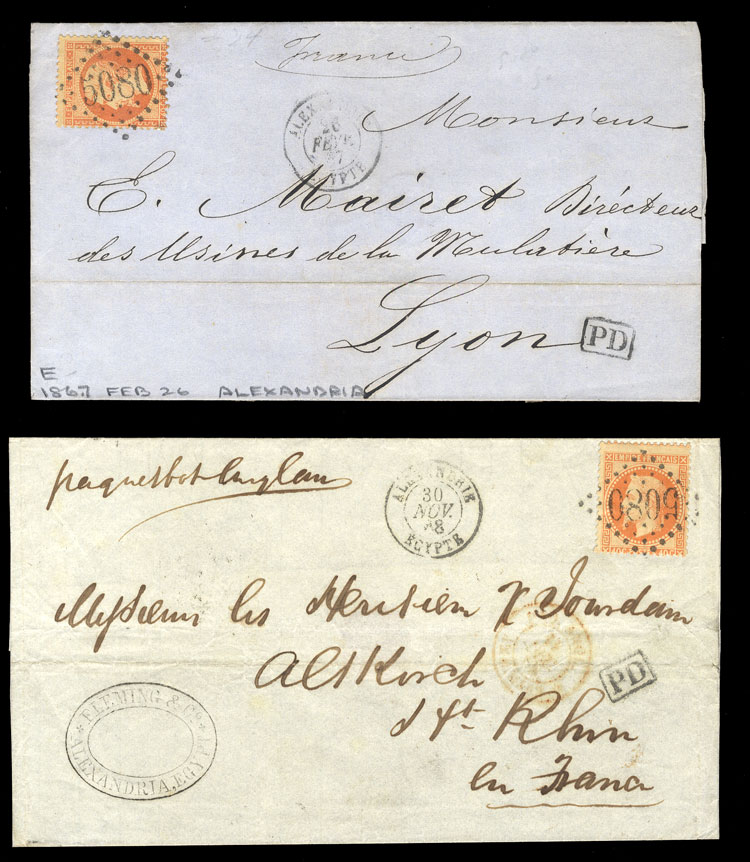 5080
France
ALEXANDRIE
26
FEVR.
67
EGYPTE
Monsieur
E. Mairet Directeur
des Usines de la Mulatière
Lyon
PD
E
1867 FEB 26 ALEXANDRIA
paquebot anglais
ALEXANDRIE
30
NOV.
68
EGYPTE
EMPIRE FRANCAIS
5080
Messieurs les Heritiers X Jourdain
Altkirch
dt Rhin
en France
PD
FLEMING & Co
ALEXANDRIA, EGYPT